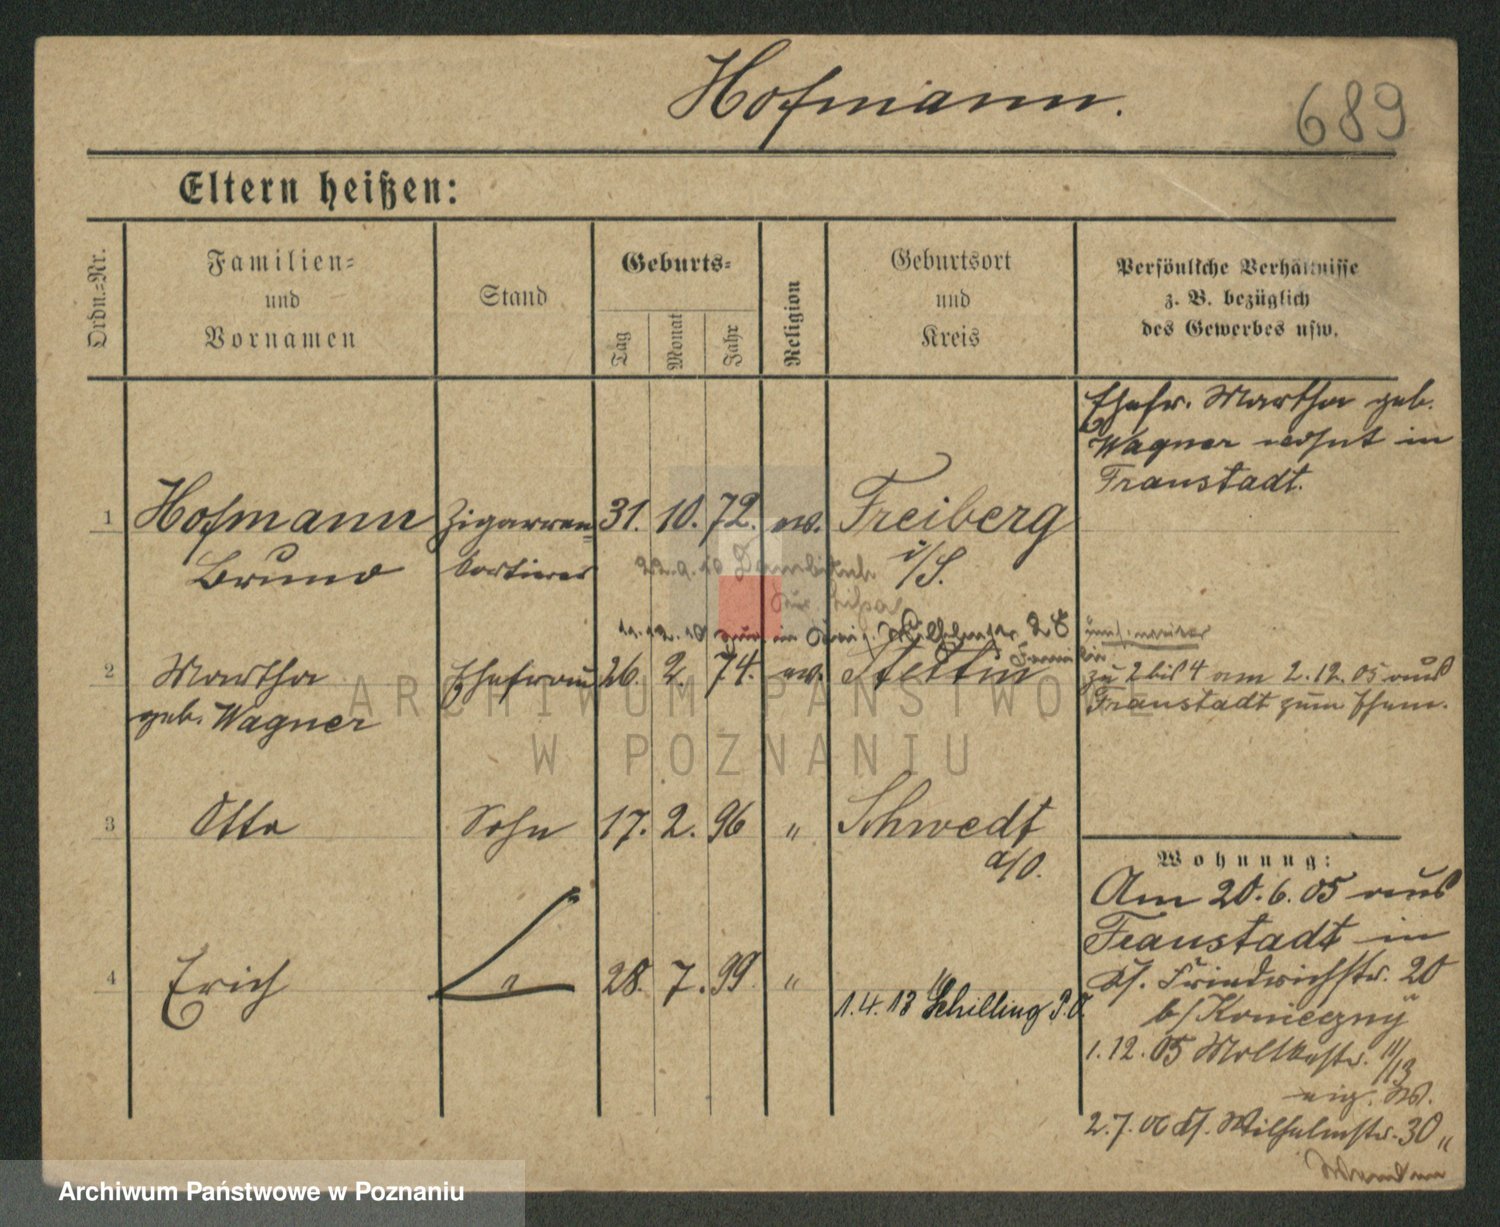 Hofmann.
689
Eltern heißen:
Ordn.-Nr.
Familien-
und
Vornamen
Stand
Geburts-
Tag
Monat
Jahr
Religion
Geburtsort
und
Kreis
Persönliche Verhältnisse
z. B. bezüglich
des Gewerbes usw.
Ehefr. Martha geb.
Wagner wohnt in
Fraustadt.
1 Hofmann Zigarren- 31. 10. 72. ev. Freiberg
Bruno sortierer i/S.
11.12.10
2 Martha Ehefrau 26. 2. 74. ev. Stettin
geb. Wagner
zu 2 bis 4 am 2.12.05 aus
Fraustadt zum Ehem.
3 Otto Sohn 17. 2. 96 " Schwedt
a/O.
4 Erich " 28. 7. 99 " "
1.4.13 Schilling P.O.
Wohnung:
Am 20.6.05 aus
Fraustadt in
Friedrichstr. 20
b/ Konieczny
1.12.05 Moltkestr. 11/13
eig. W.
2.7.06 Wilhelmstr. 30 "
ARCHIWUM PAŃSTWOWE
W POZNANIU
Archiwum Państwowe w Poznaniu